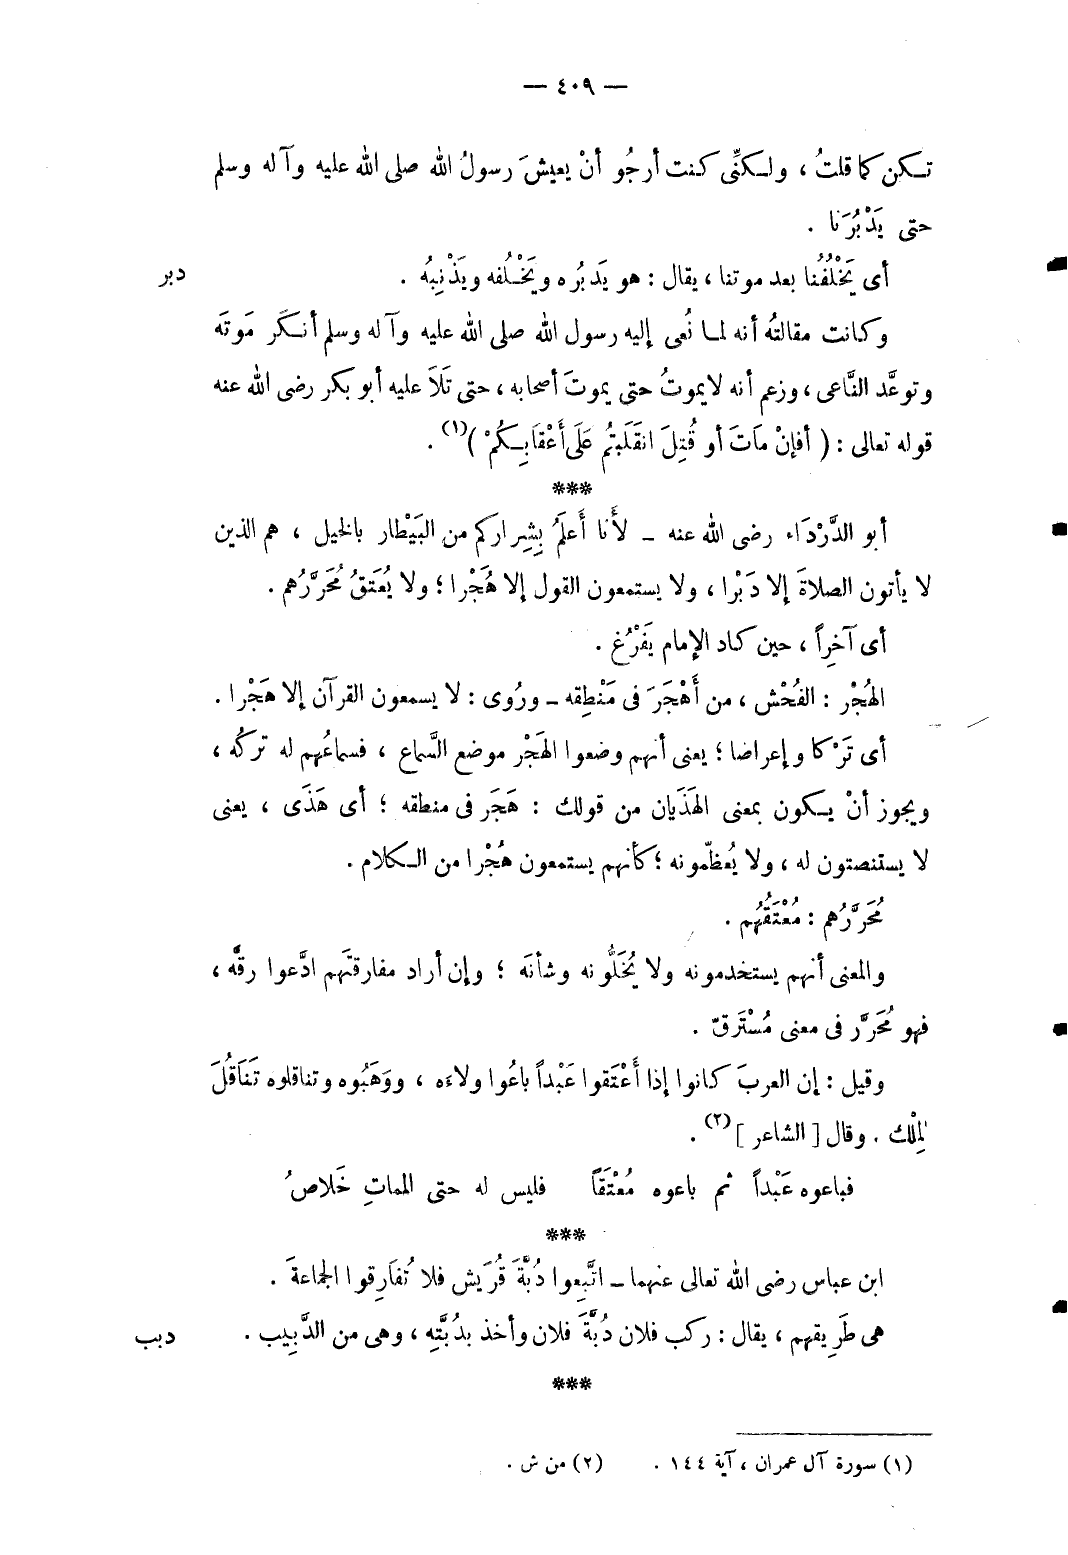 — ٤٠٩ —
تكن كما قلتُ ، ولكنِّى كنت أرجُو أنْ يعيشَ رسولُ الله صلى الله عليه وآله وسلم
حتى يَدْبُرَنا .
أى يَخْلُفُنا بعد موتنا ، يقال : هو يَدبُره ويَخْلُفه ويَذْنِبُه . دبر
وكانت مقالتُه أنه لما نُعى إليه رسول الله صلى الله عليه وآله وسلم أنكَر مَوتَه
وتوعَّد النَّاعى ، وزعم أنه لايموتُ حتى يموتَ أصحابه ، حتى تَلاَ عليه أبو بكر رضى الله عنه
قوله تعالى : ( أفإنْ مَاتَ أو قُتِلَ انقَلَبتُم عَلَى أَعْقَابِكُمْ )(١) .
***
أبو الدَّرْدَاء رضى الله عنه – لأَنا أَعلَمُ بِشِراركم من البَيْطار بالخيل ، هم الذين
لا يأتون الصلاةَ إلا دَبْرا ، ولا يستمعون القول إلا هُجْرا ؛ ولا يُعتَقُ مُحَرَّرُهم .
أى آخِراً ، حين كاد الإمام يَفْرُغ .
الهُجْر : الفُحْش ، من أَهْجَرَ فى مَنْطِقه – ورُوى : لا يسمعون القرآن إلا هَجْرا .
أى تَرْكا وإعراضا ؛ يعنى أنهم وضعوا الهَجْر موضع السَّماع ، فسماعُهم له تركُه ،
ويجوز أنْ يكون بمعنى الهَذَيان من قولك : هَجَر فى منطقه ؛ أى هَذَى ، يعنى
لا يستنصتون له ، ولا يُعظّمونه ؛ كأنهم يستمعون هُجْرا من الكلام .
مُحَرَّرُهم : مُعْتَقُهم .
والمعنى أنهم يستخدمونه ولا يُخَلُّونه وشأنَه ؛ وإن أراد مفارقتَهم ادَّعوا رقَّه ،
فهو مُحَرَّر فى معنى مُسْتَرقّ .
وقيل : إن العربَ كانوا إذا أَعْتَقوا عَبْداً باعُوا ولاءَه ، ووَهَبُوه وتناقلوه تَنَاقُلَ
المِلْك . وقال [ الشاعر ](٢) .
فباعوه عَبْداً ثم باعوه مُعْتَقاً فليس له حتى المماتِ خَلاصُ
***
ابن عباس رضى الله تعالى عنهما – اتَّبِعوا دُبَّةَ قُرَيش فلا تُفَارِقوا الجماعةَ .
هى طَرِيقهم ، يقال : ركب فلان دُبَّةَ فلان وأخذ بدُبَّتِه ، وهى من الدَّبِيب . دبب
***
(١) سورة آل عمران ، آية ١٤٤ . (٢) من ش .